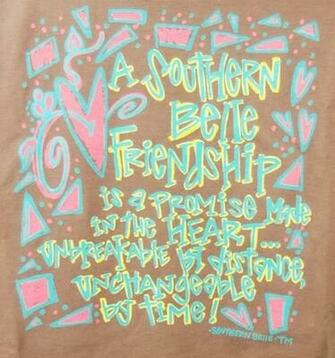 A SOUTHERN
BELLE
FRIENDSHIP
is a PROMISE made
in the HEART...
UNBREAKABLE by distance,
UNCHANGEABLE
by time!
-SOUTHERN BELLE™